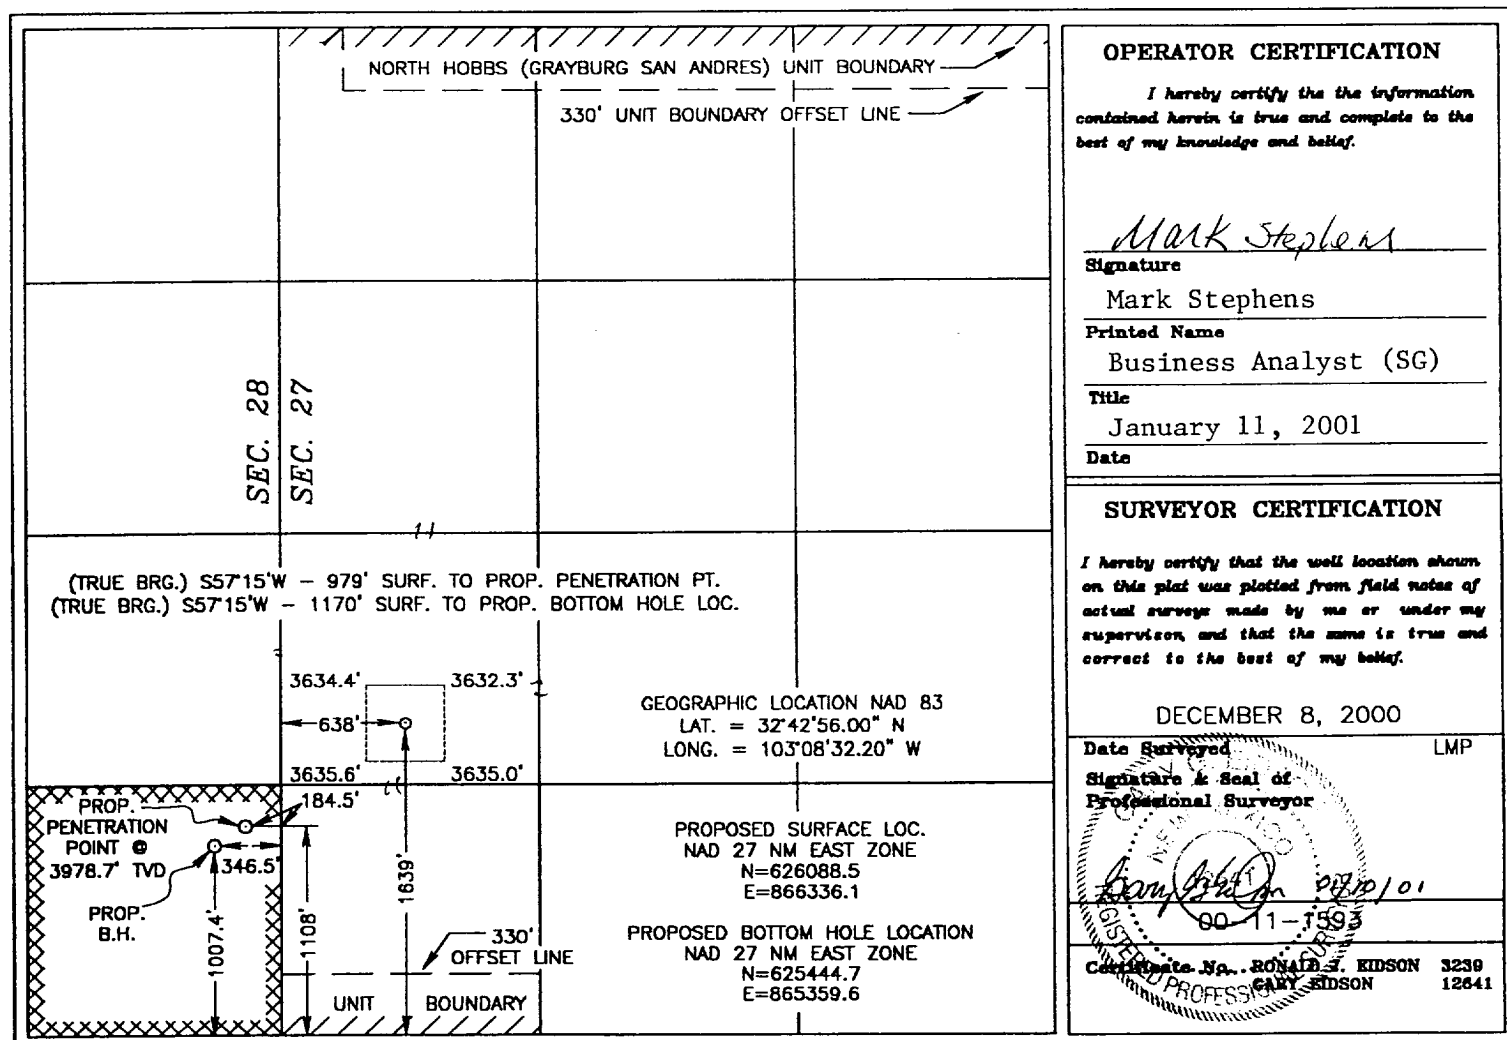 NORTH HOBBS (GRAYBURG SAN ANDRES) UNIT BOUNDARY
330' UNIT BOUNDARY OFFSET LINE
SEC. 28
SEC. 27
(TRUE BRG.) S57°15'W - 979' SURF. TO PROP. PENETRATION PT.
(TRUE BRG.) S57°15'W - 1170' SURF. TO PROP. BOTTOM HOLE LOC.
3634.4' 3632.3'
638'
3635.6' 3635.0'
GEOGRAPHIC LOCATION NAD 83
LAT. = 32°42'56.00" N
LONG. = 103°08'32.20" W
184.5'
PROP.
PENETRATION
POINT @
3978.7' TVD
346.5'
PROP.
B.H.
1007.4'
1108'
1639'
330'
OFFSET LINE
UNIT BOUNDARY
PROPOSED SURFACE LOC.
NAD 27 NM EAST ZONE
N=626088.5
E=866336.1
PROPOSED BOTTOM HOLE LOCATION
NAD 27 NM EAST ZONE
N=625444.7
E=865359.6
OPERATOR CERTIFICATION
I hereby certify the the information
contained herein is true and complete to the
best of my knowledge and belief.
Mark Stephens
Signature
Mark Stephens
Printed Name
Business Analyst (SG)
Title
January 11, 2001
Date
SURVEYOR CERTIFICATION
I hereby certify that the well location shown
on this plat was plotted from field notes of
actual surveys made by me or under my
supervison, and that the same is true and
correct to the best of my belief.
DECEMBER 8, 2000
Date Surveyed LMP
Signature & Seal of
Professional Surveyor
NEW MEXICO
REGISTERED PROFESSIONAL SURVEYOR
00-11-1593
Certificate No. RONALD J. EIDSON 3239
GARY EIDSON 12641